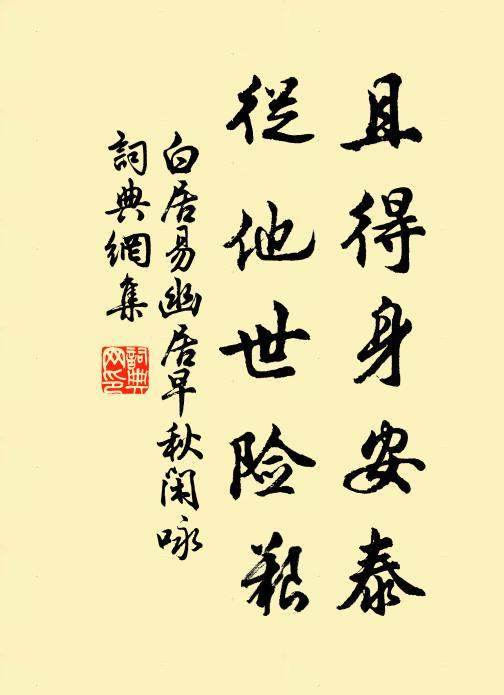 且得身安泰
從他世险艱
白居易幽居早秋閑咏
詞典網集
詞典网印